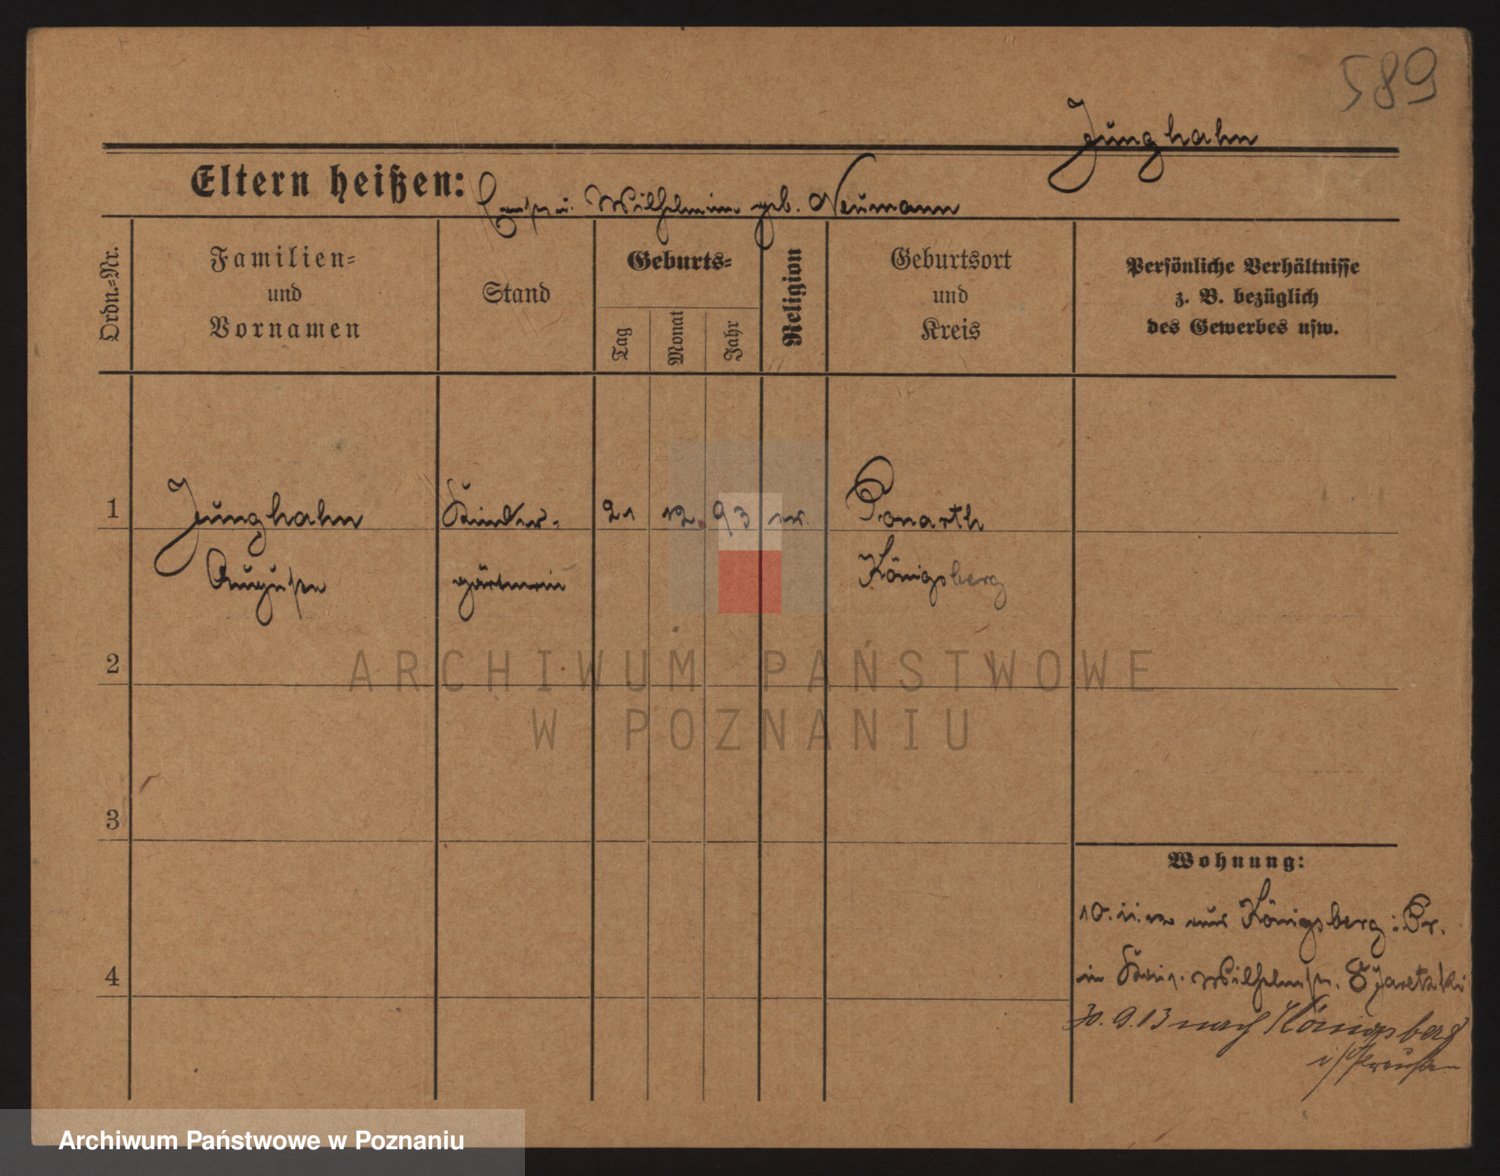 589
Junghahn
Eltern heißen: u. Wilhelmine geb. Neumann
Ordn.-Nr.
Familien-
und
Vornamen
Stand
Geburts-
Tag
Monat
Jahr
Religion
Geburtsort
und
Kreis
Persönliche Verhältnisse
z. B. bezüglich
des Gewerbes usw.
1 Junghahn Kinder- 21 12. 93 ev. Ponarth
Auguste gärtnerin Königsberg
2
ARCHIWUM PAŃSTWOWE
W POZNANIU
3
Wohnung:
10. aus Königsberg i. Pr.
4 Wilhelmstr.
30. 9. 13 nach Königsberg
i/Preußen
Archiwum Państwowe w Poznaniu